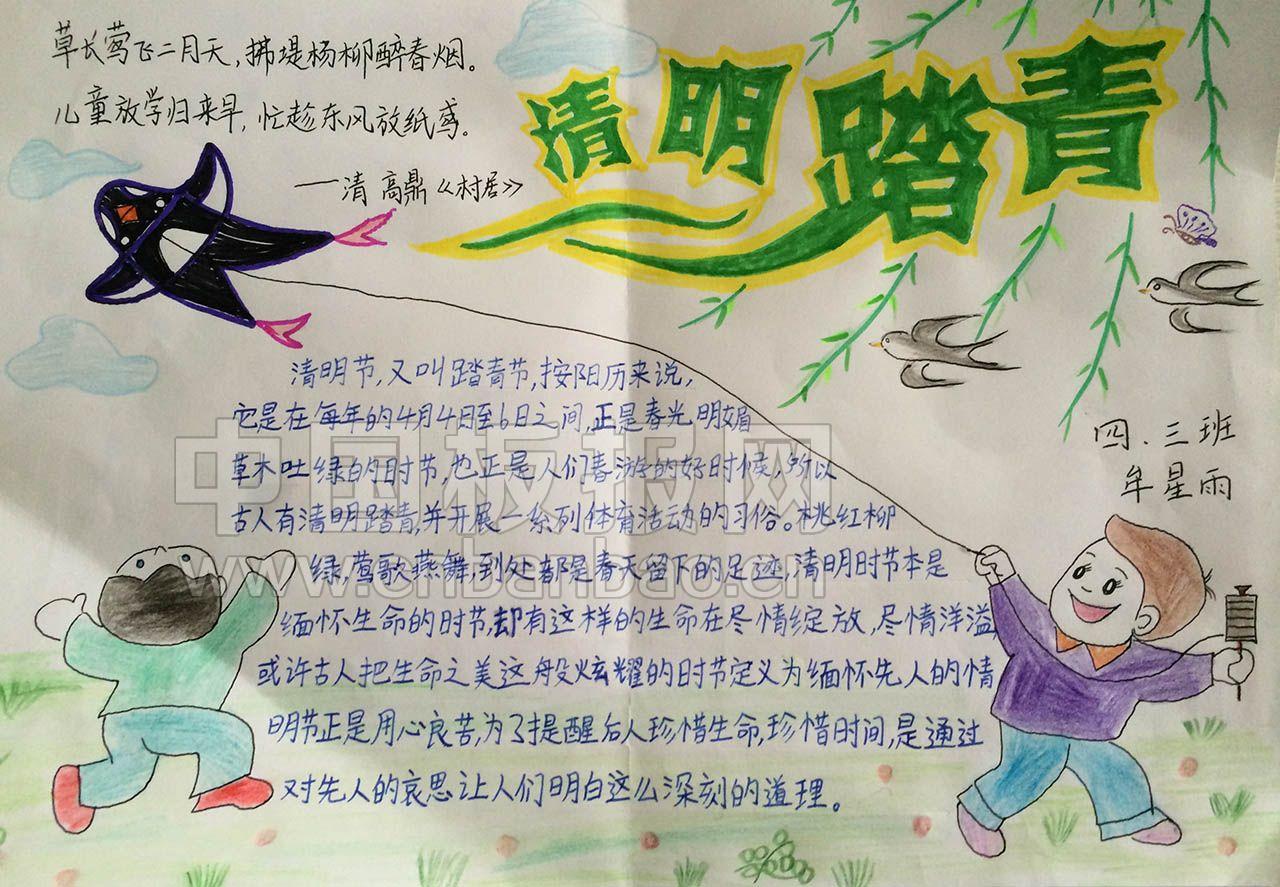 草长莺飞二月天,拂堤杨柳醉春烟。
儿童放学归来早,忙趁东风放纸鸢.
——清 高鼎《村居》
清明踏青
清明节,又叫踏青节,按阳历来说,
它是在每年的4月4日至6日之间,正是春光明媚
草木吐绿的时节,也正是人们春游的好时候,所以
古人有清明踏青,并开展一系列体育活动的习俗。桃红柳
绿,莺歌燕舞,到处都是春天留下的足迹,清明时节本是
缅怀生命的时节,却有这样的生命在尽情绽放,尽情洋溢
或许古人把生命之美这般炫耀的时节定义为缅怀先人的情
明节正是用心良苦,为了提醒后人珍惜生命,珍惜时间,是通过
对先人的哀思让人们明白这么深刻的道理。
四.三班
牟星雨
中国板报网
www.cnbanbao.cn